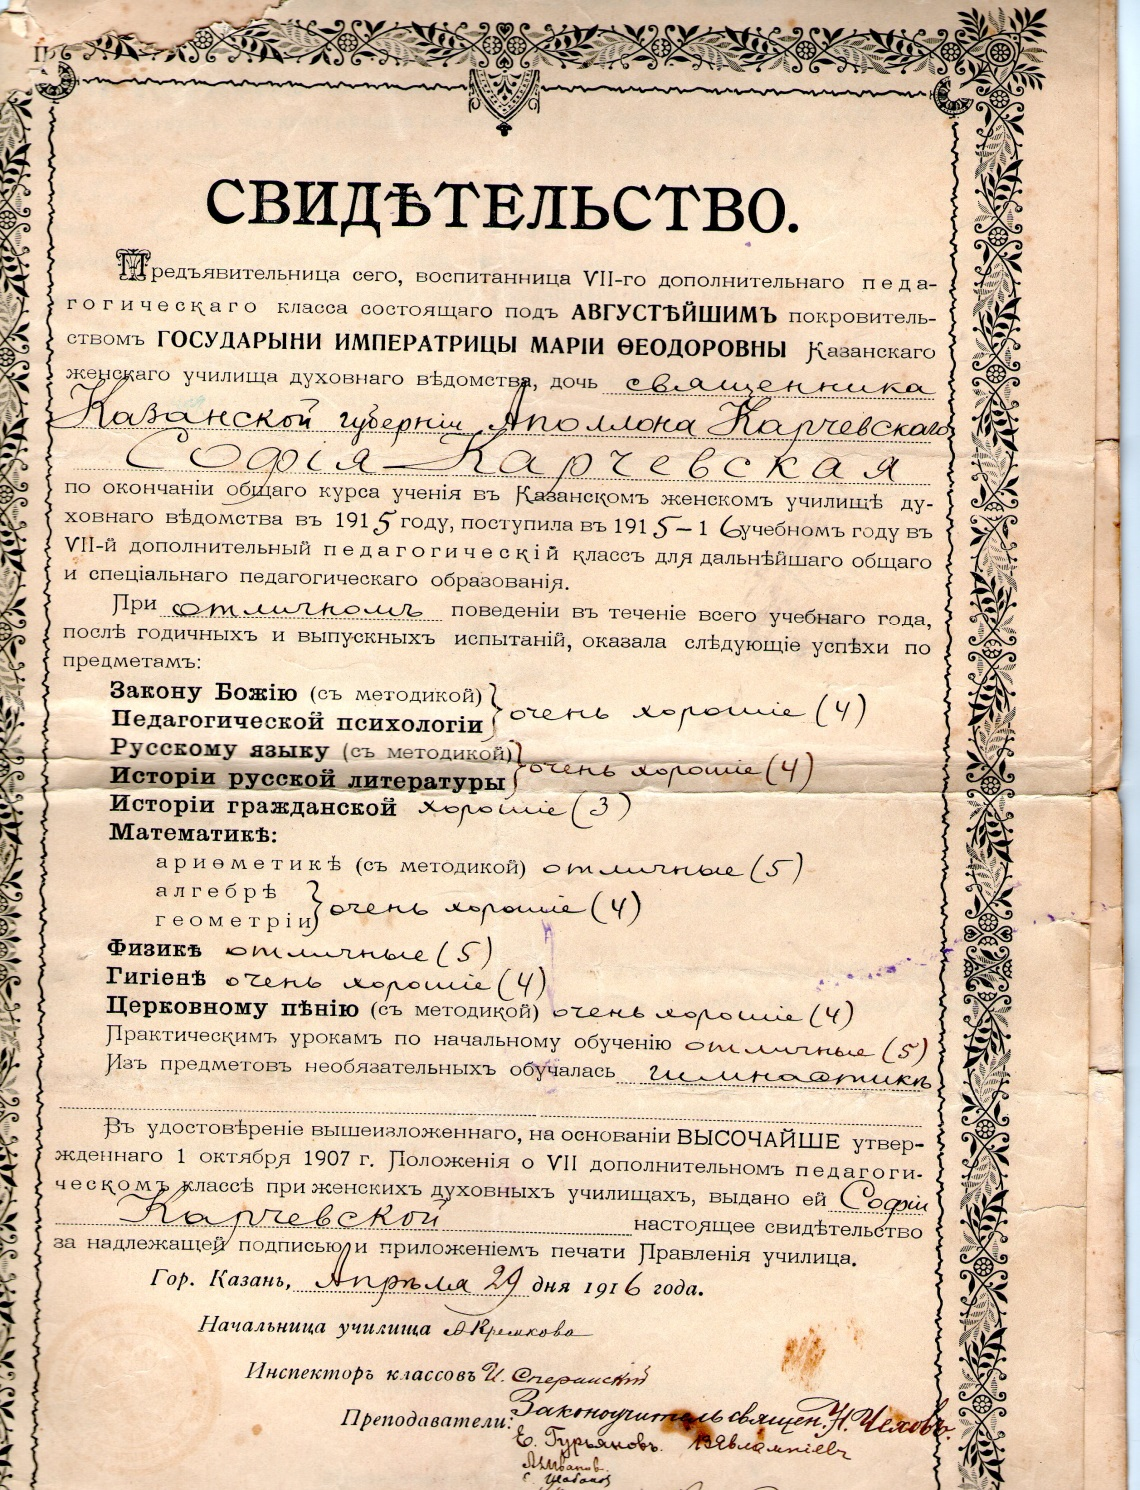 СВИДѢТЕЛЬСТВО.
Предъявительница сего, воспитанница VII-го дополнительнаго педа-
гогическаго класса состоящаго подъ АВГУСТѢЙШИМЪ покровитель-
ствомъ ГОСУДАРЫНИ ИМПЕРАТРИЦЫ МАРІИ ѲЕОДОРОВНЫ Казанскаго
женскаго училища духовнаго вѣдомства, дочь священника
Казанской губерніи Аполлона Карчевскаго
Софія Карчевская
по окончаніи общаго курса ученія въ Казанскомъ женскомъ училищѣ ду-
ховнаго вѣдомства въ 1915 году, поступила въ 1915–16 учебномъ году въ
VII-й дополнительный педагогическій классъ для дальнѣйшаго общаго
и спеціальнаго педагогическаго образованія.
При отличномъ поведеніи въ теченіе всего учебнаго года,
послѣ годичныхъ и выпускныхъ испытаній, оказала слѣдующіе успѣхи по
предметамъ:
Закону Божію (съ методикой)
Педагогической психологіи } очень хорошіе (4)
Русскому языку (съ методикой)
Исторіи русской литературы } очень хорошіе (4)
Исторіи гражданской хорошіе (3)
Математикѣ:
ариѳметикѣ (съ методикой) отличные (5)
алгебрѣ
геометріи } очень хорошіе (4)
Физикѣ отличные (5)
Гигіенѣ очень хорошіе (4)
Церковному пѣнію (съ методикой) очень хорошіе (4)
Практическимъ урокамъ по начальному обученію отличные (5)
Изъ предметовъ необязательныхъ обучалась гимнастикѣ
Въ удостовѣреніе вышеизложеннаго, на основаніи ВЫСОЧАЙШЕ утвер-
жденнаго 1 октября 1907 г. Положенія о VII дополнительномъ педагоги-
ческомъ классѣ при женскихъ духовныхъ училищахъ, выдано ей Софіи
Карчевской настоящее свидѣтельство
за надлежащей подписью и приложеніемъ печати Правленія училища.
Гор. Казань, Апрѣля 29 дня 1916 года.
Начальница училища А Кремкова
Инспекторъ классовъ И. Сперанскій
Преподаватели: Законоучитель священ. Н. Чеховъ.
Е. Гурьяновъ. Евлампіевъ
Ивановъ.